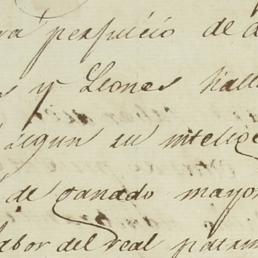 perjuicio de
y Leones
segun su intelige
de ganado mayor
labor del real